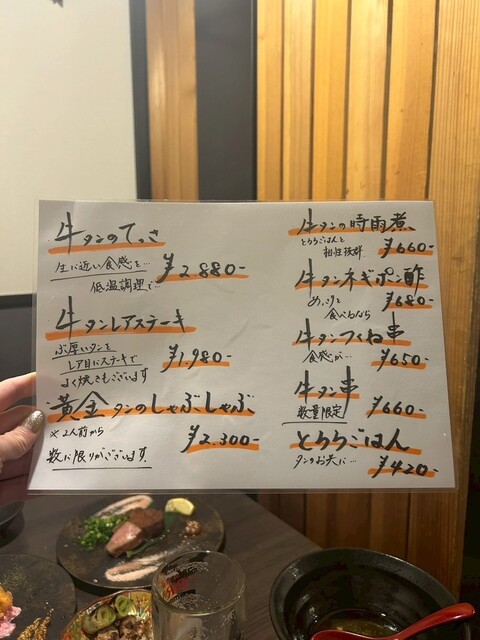 牛タンのてっさ
生に近い食感を…
低温調理で…
¥2880-
牛タンレアステーキ
ぶ厚いタンを
レア目にステーキで
よく焼きもございます
¥1,980-
黄金タンのしゃぶしゃぶ
※2人前から
¥2.300-
数に限りがございます
牛タンの時雨煮
とろろごはんと
相性抜群
¥660-
牛タンネギポン酢
めっさりと
食べるなら
¥680-
牛タンつくね串
食感が…
¥650-
牛タン串
数量限定
¥660-
とろろごはん
タンのお供に…
¥420-